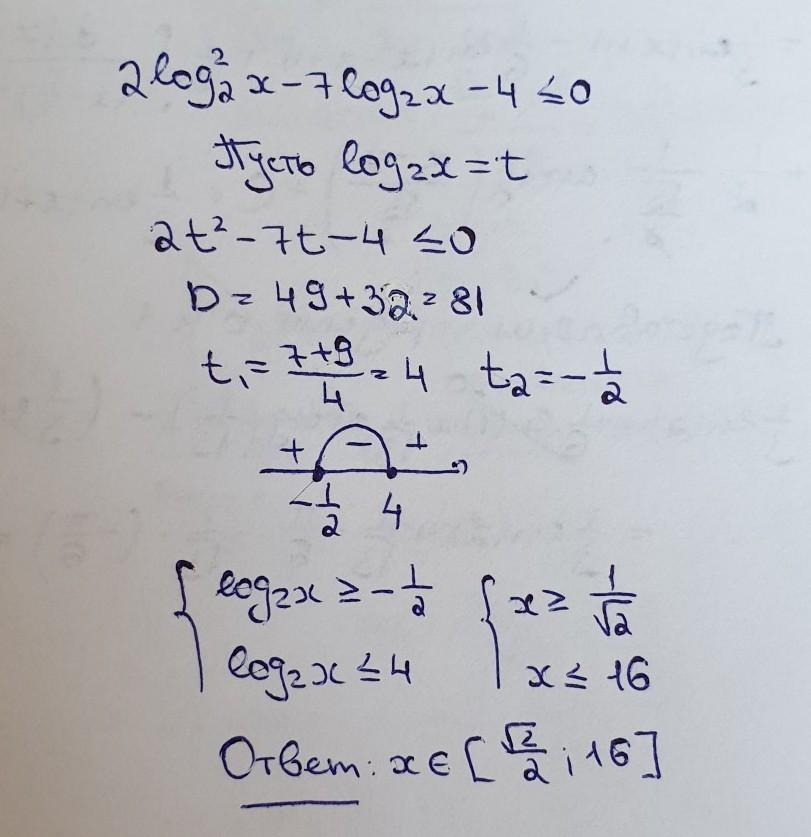 2log₂²x − 7log₂x − 4 ≤ 0
Пусть log₂x = t
2t² − 7t − 4 ≤ 0
D = 49 + 32 = 81
t₁ = (7+9)/4 = 4 t₂ = −1/2
+ − +
−1/2 4
{ log₂x ≥ −1/2 { x ≥ 1/√2
log₂x ≤ 4 x ≤ 16
Ответ: x ∈ [√2/2 ; 16]